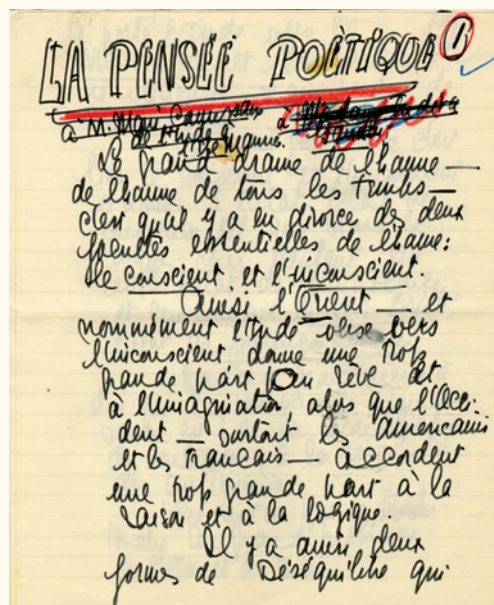 LA PENSÉE POÉTIQUE 1
à M.
de l'Inde à
Le grand drame de l'homme —
de l'homme de tous les temps —
c'est qu'il y a eu divorce des deux
facultés essentielles de l'homme:
le conscient et l'inconscient.
Ainsi l'Orient — et
nommément l'Inde vers
l'inconscient donne une trop
grande part au rêve et
à l'imagination, alors que l'Occi-
dent — surtout les américains
et les français — accordent
une trop grande part à la
raison et à la logique.
Il y a ainsi deux
formes de Déséquilibre qui